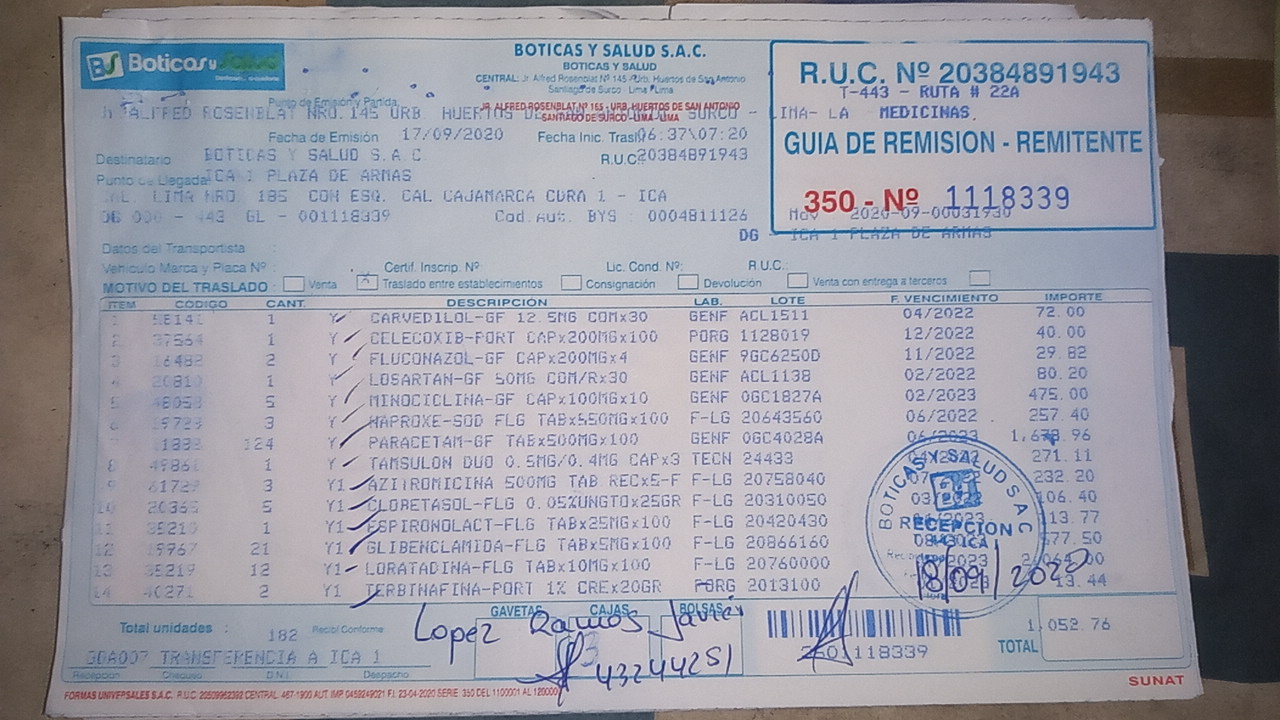 Boticas y Salud
BOTICAS Y SALUD S.A.C.
BOTICAS Y SALUD
CENTRAL: Jr. Alfred Rosenblat Nº 145 - Urb. Huertos de San Antonio
Santiago de Surco - Lima - Lima
JR. ALFRED ROSENBLAT Nº 165 - URB. HUERTOS DE SAN ANTONIO
SANTIAGO DE SURCO - LIMA - LIMA
R.U.C. Nº 20384891943
T-443 - RUTA # 22A
MEDICINAS.
GUIA DE REMISION - REMITENTE
350 - Nº 1118339
Punto de Emisión y Partida
ALFRED ROSENBLAT NRO. 145 URB. HUERTOS SURCO - LIMA- LA
Fecha de Emisión 17/09/2020 Fecha Inic. Trasl 06:37\07:20
Destinatario BOTICAS Y SALUD S.A.C R.U.C 20384891943
Punto de Llegada ICA 1 PLAZA DE ARMAS
CAL. LIMA NRO 185 CON ESQ. CAL CAJAMARCA CDRA 1 - ICA
OG 000 - 443 GL - 001118339 Cod.Aut. BYS : 0004811126 Mov 2020-09-00031930
DG - ICA 1 PLAZA DE ARMAS
Datos del Transportista :
Vehículo Marca y Placa Nº : Certif. Inscrip. Nº Lic. Cond. Nº: R.U.C.:
MOTIVO DEL TRASLADO : Venta X Traslado entre establecimientos Consignación Devolución Venta con entrega a terceros
ITEM CODIGO CANT. DESCRIPCIÓN LAB. LOTE F. VENCIMIENTO IMPORTE
1 58141 1 Y CARVEDILOL-GF 12.5MG COMx30 GENF ACL1511 04/2022 72.00
2 37564 1 Y CELECOXIB-PORT CAPx200MGx100 PORG 1128019 12/2022 40.00
3 16482 2 Y FLUCONAZOL-GF CAPx200MGx4 GENF 9GC6250D 11/2022 29.82
4 20810 1 Y LOSARTAN-GF 50MG COM/Rx30 GENF ACL1138 02/2022 80.20
5 48053 5 Y MINOCICLINA-GF CAPx100MGx10 GENF 0GC1827A 02/2023 475.00
6 19723 3 Y NAPROXE-SOD FLG TABx550MGx100 F-LG 20643560 06/2022 257.40
7 1888 124 Y PARACETAM-GF TABx500MGx100 GENF 0GC4028A 06/2023
8 49861 1 Y TAMSULON DUO 0.5MG/0.4MG CAPx3 TECN 24433 271.11
9 61729 3 Y1 AZITROMICINA 500MG TAB.RECx5-F F-LG 20758040 232.20
10 20365 5 Y1 CLOBETASOL-FLG 0.05%UNGTOx25GR F-LG 20310050 106.40
11 35210 1 Y1 ESPIRONOLACT-FLG TABx25MGx100 F-LG 20420430 13.77
12 19967 21 Y1 GLIBENCLAMIDA-FLG TABx5MGx100 F-LG 20866160 577.50
13 35219 12 Y1 LORATADINA-FLG TABx10MGx100 F-LG 20760000
14 40271 2 Y1 TERBINAFINA-PORT 1% CREx20GR PORG 2013100 13.44
BOTICAS Y SALUD S A C
RECEPCION
ICA 1
18/09/2020
GAVETAS CAJAS BOLSAS
Total unidades : 182 Recibí Conforme
Lopez Ramos Javier
3
43244251
118339
TOTAL 1,052.76
GDA007 TRANSFERENCIA A ICA 1
Recepción Chequeo D.N.I. Despacho
SUNAT
FORMAS UNIVERSALES S.A.C. R.U.C. 20509962392 CENTRAL: 467-1900 AUT. IMP. 0459249021 F.I. 23-04-2020 SERIE: 350 DEL 1100001 AL 1200000